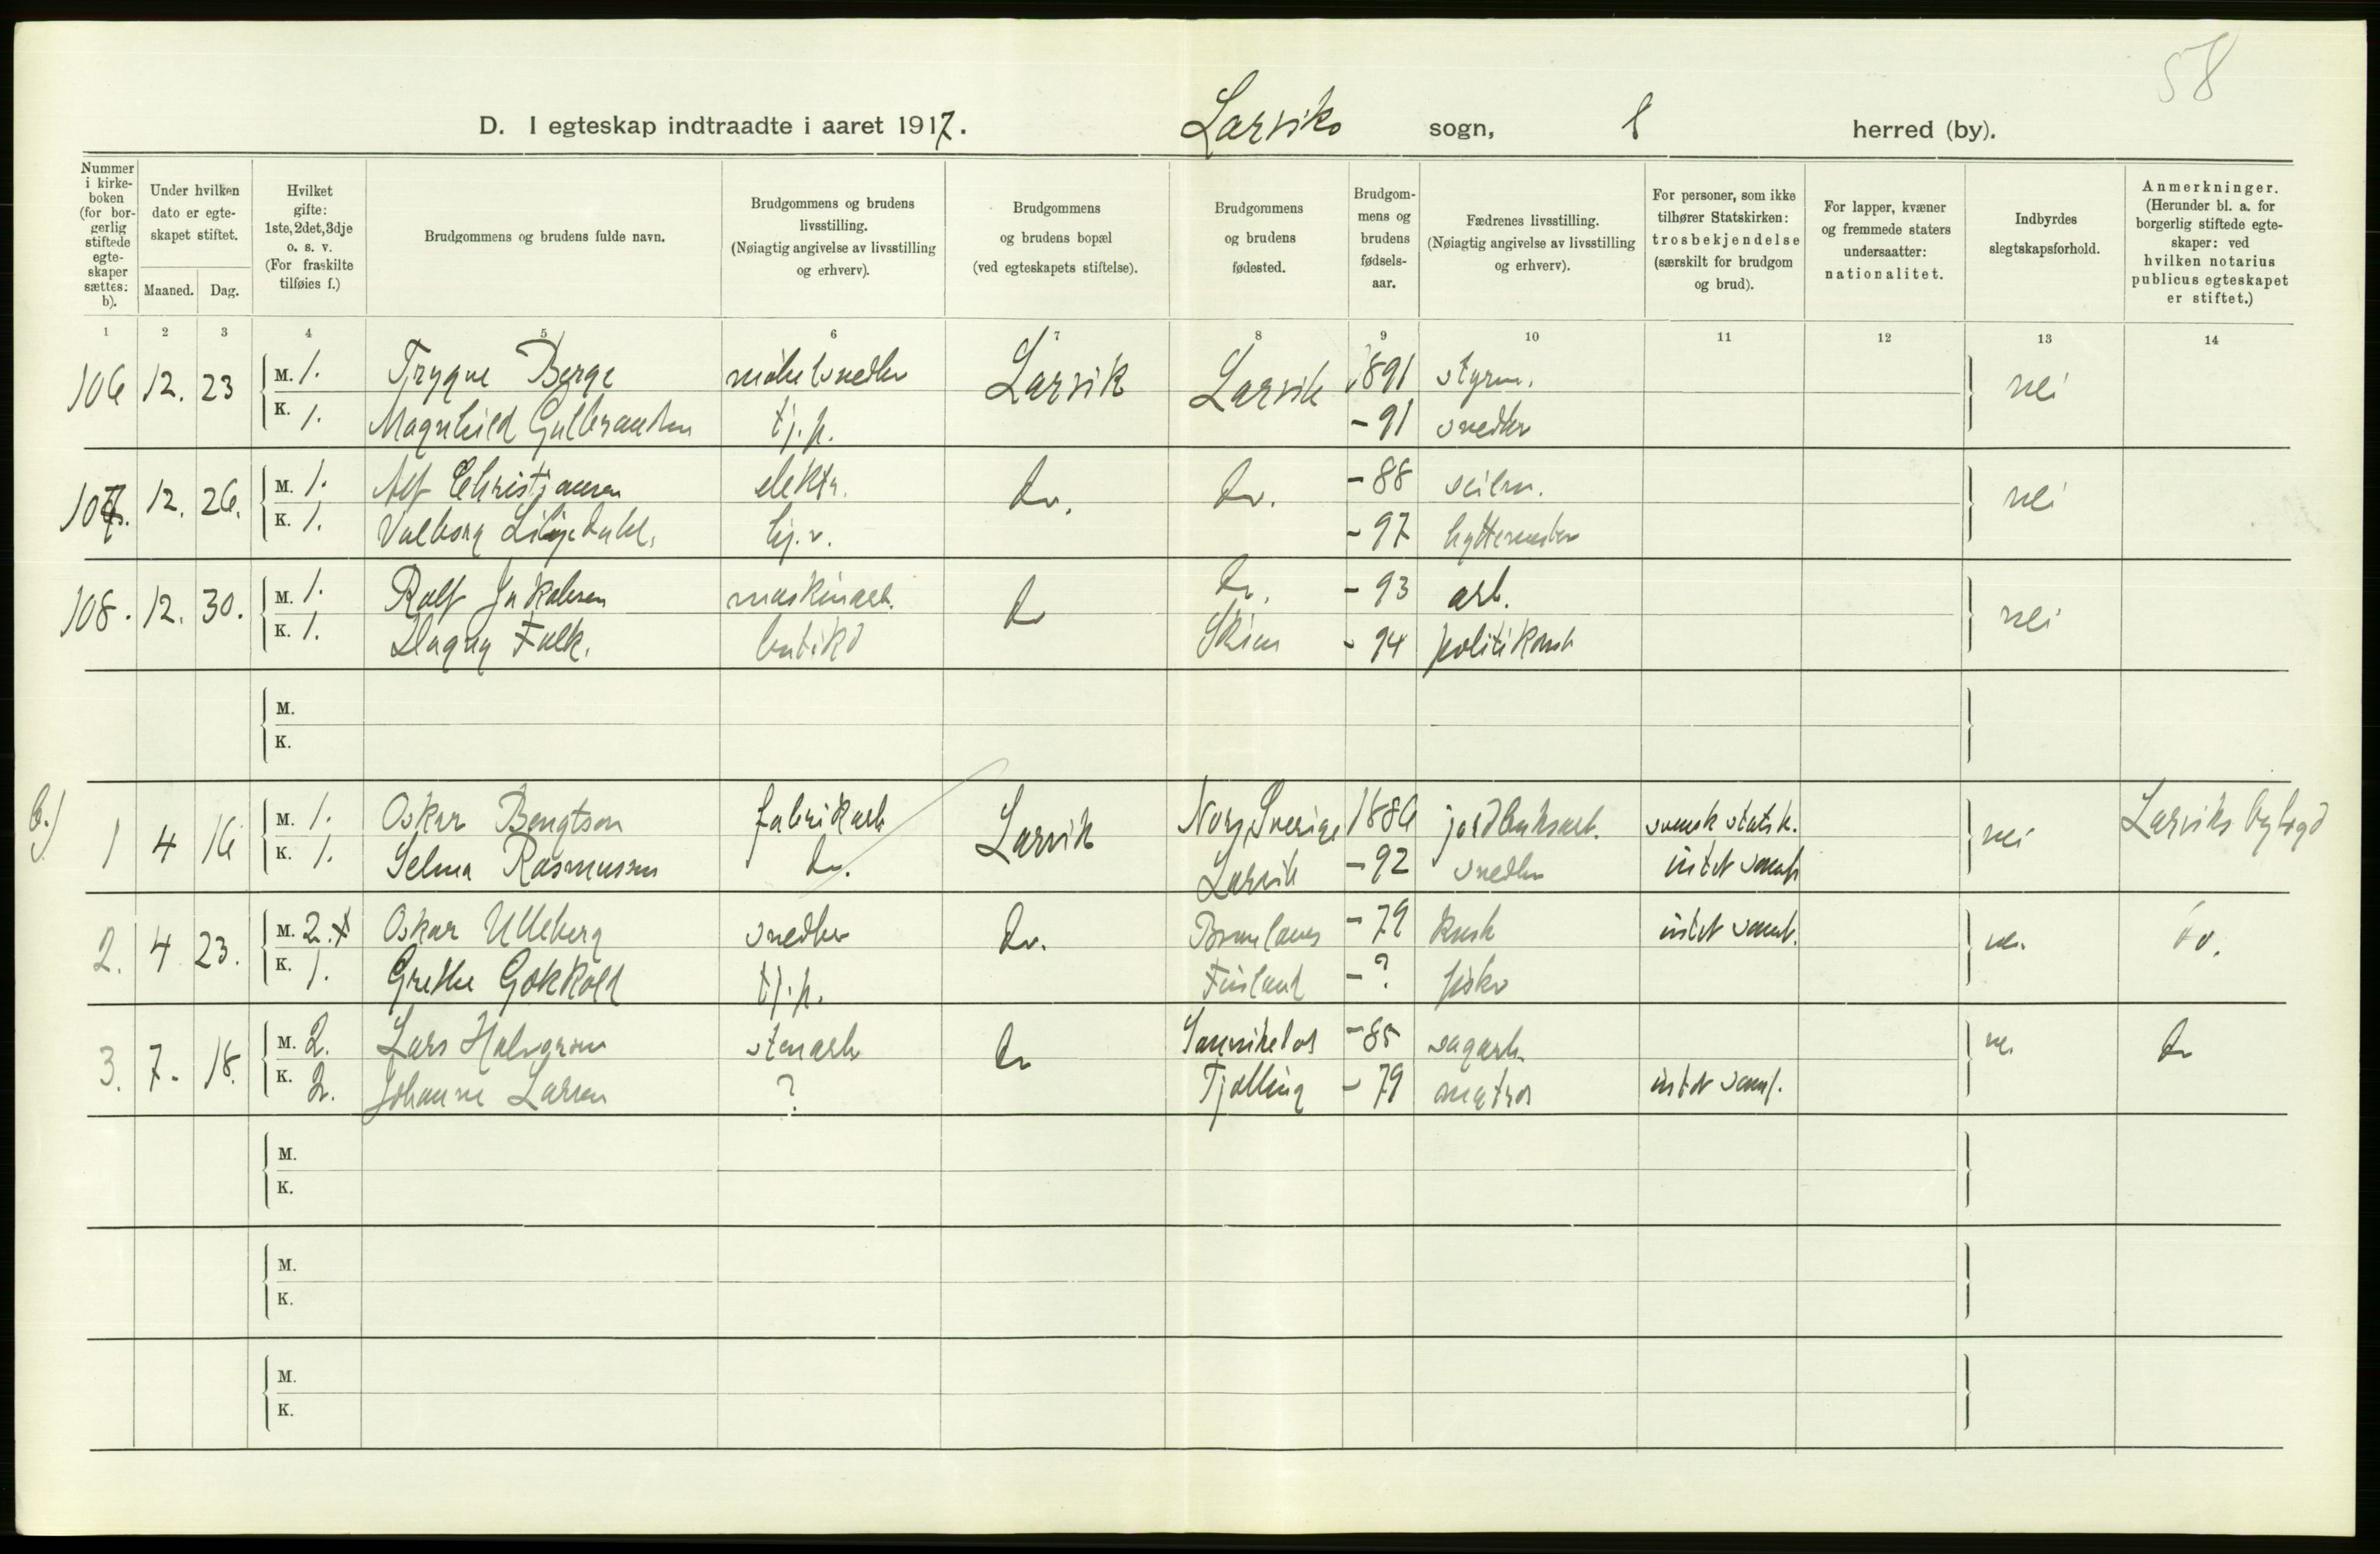 58
D. I egteskap indtraadte i aaret 1917. Larviks sogn, herred (by).
Nummer i kirkeboken (for borgerlig stiftede egteskaper sættes: b).
Under hvilken dato er egteskapet stiftet.
Maaned. Dag.
Hvilket gifte: 1ste, 2det, 3dje o. s. v. (For fraskilte tilføies f.)
Brudgommens og brudens fulde navn.
Brudgommens og brudens livsstilling. (Nøiagtig angivelse av livsstilling og erhverv).
Brudgommens og brudens bopæl (ved egteskapets stiftelse).
Brudgommens og brudens fødested.
Brudgommens og brudens fødselsaar.
Fædrenes livsstilling. (Nøiagtig angivelse av livsstilling og erhverv).
For personer, som ikke tilhører Statskirken: trosbekjendelse (særskilt for brudgom og brud).
For lapper, kvæner og fremmede staters undersaatter: nationalitet.
Indbyrdes slegtskapsforhold.
Anmerkninger. (Herunder bl. a. for borgerlig stiftede egteskaper: ved hvilken notarius publicus egteskapet er stiftet.)
1 2 3 4 5 6 7 8 9 10 11 12 13 14
106 12. 23 M. 1. Trygve Berge møbelsnedker Larvik Larvik 1891 styrm. nei
K. 1. Magnhild Gulbrandsen tj.p. - 91 snedker
107. 12. 26. M. 1. Alf Christiansen elektr. do. do. - 88 seilm. nei
K. 1. Valborg Liljedahl. hj.v. - 97 hyttemester
108. 12. 30. M. 1. Rolf Jakobsen maskinarb. do do. - 93 arb. nei
K. 1. Dagny Falk. butikd Skien - 94 politikonst
M.
K.
b.) 1 4 16 M. 1. Oskar Bengtson fabrikarb Larvik Sverige 1886 jordbruksarb. svensk statsk. nei Larviks byfogd
K. 1. Selma Rasmussen do. Larvik - 92 snedker intet samf
2. 4 23. M. 2. Oskar Ulleberg snedker do. Brunlanes - 79 kusk intet samf. nei do.
K. 1. Grethe Gokkold tj.p. Finland - ? fisker
3. 7. 18. M. 2. Lars Halvorsen stenarb do Sannikedal - 85 sagarb. nei do
K. 2. Johanne Larsen ? Tjølling - 79 matros intet samf.
M.
K.
M.
K.
M.
K.